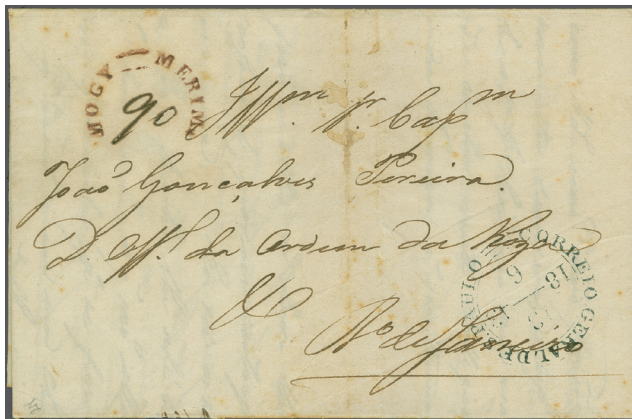 MOGY — MERIM
90 Illm. Sr. Capm
João Gonçalves Pereira
D. Offl. da Ordem da Roza
&
Rº de Janeiro
CORREIO GERAL DE S. PAULO